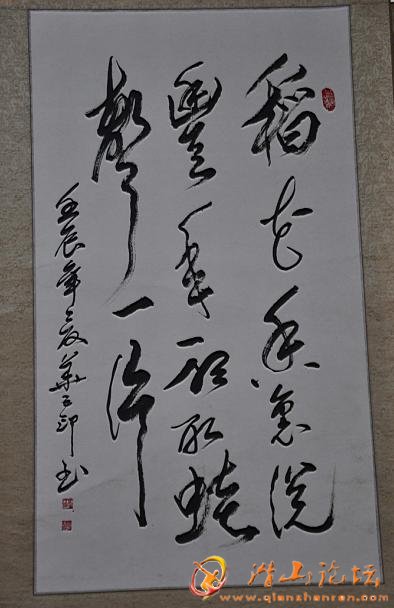 稻花香裏说
豐年听取蛙
聲一片
壬辰年夏 印书
潜山论坛
www.qianshanren.com